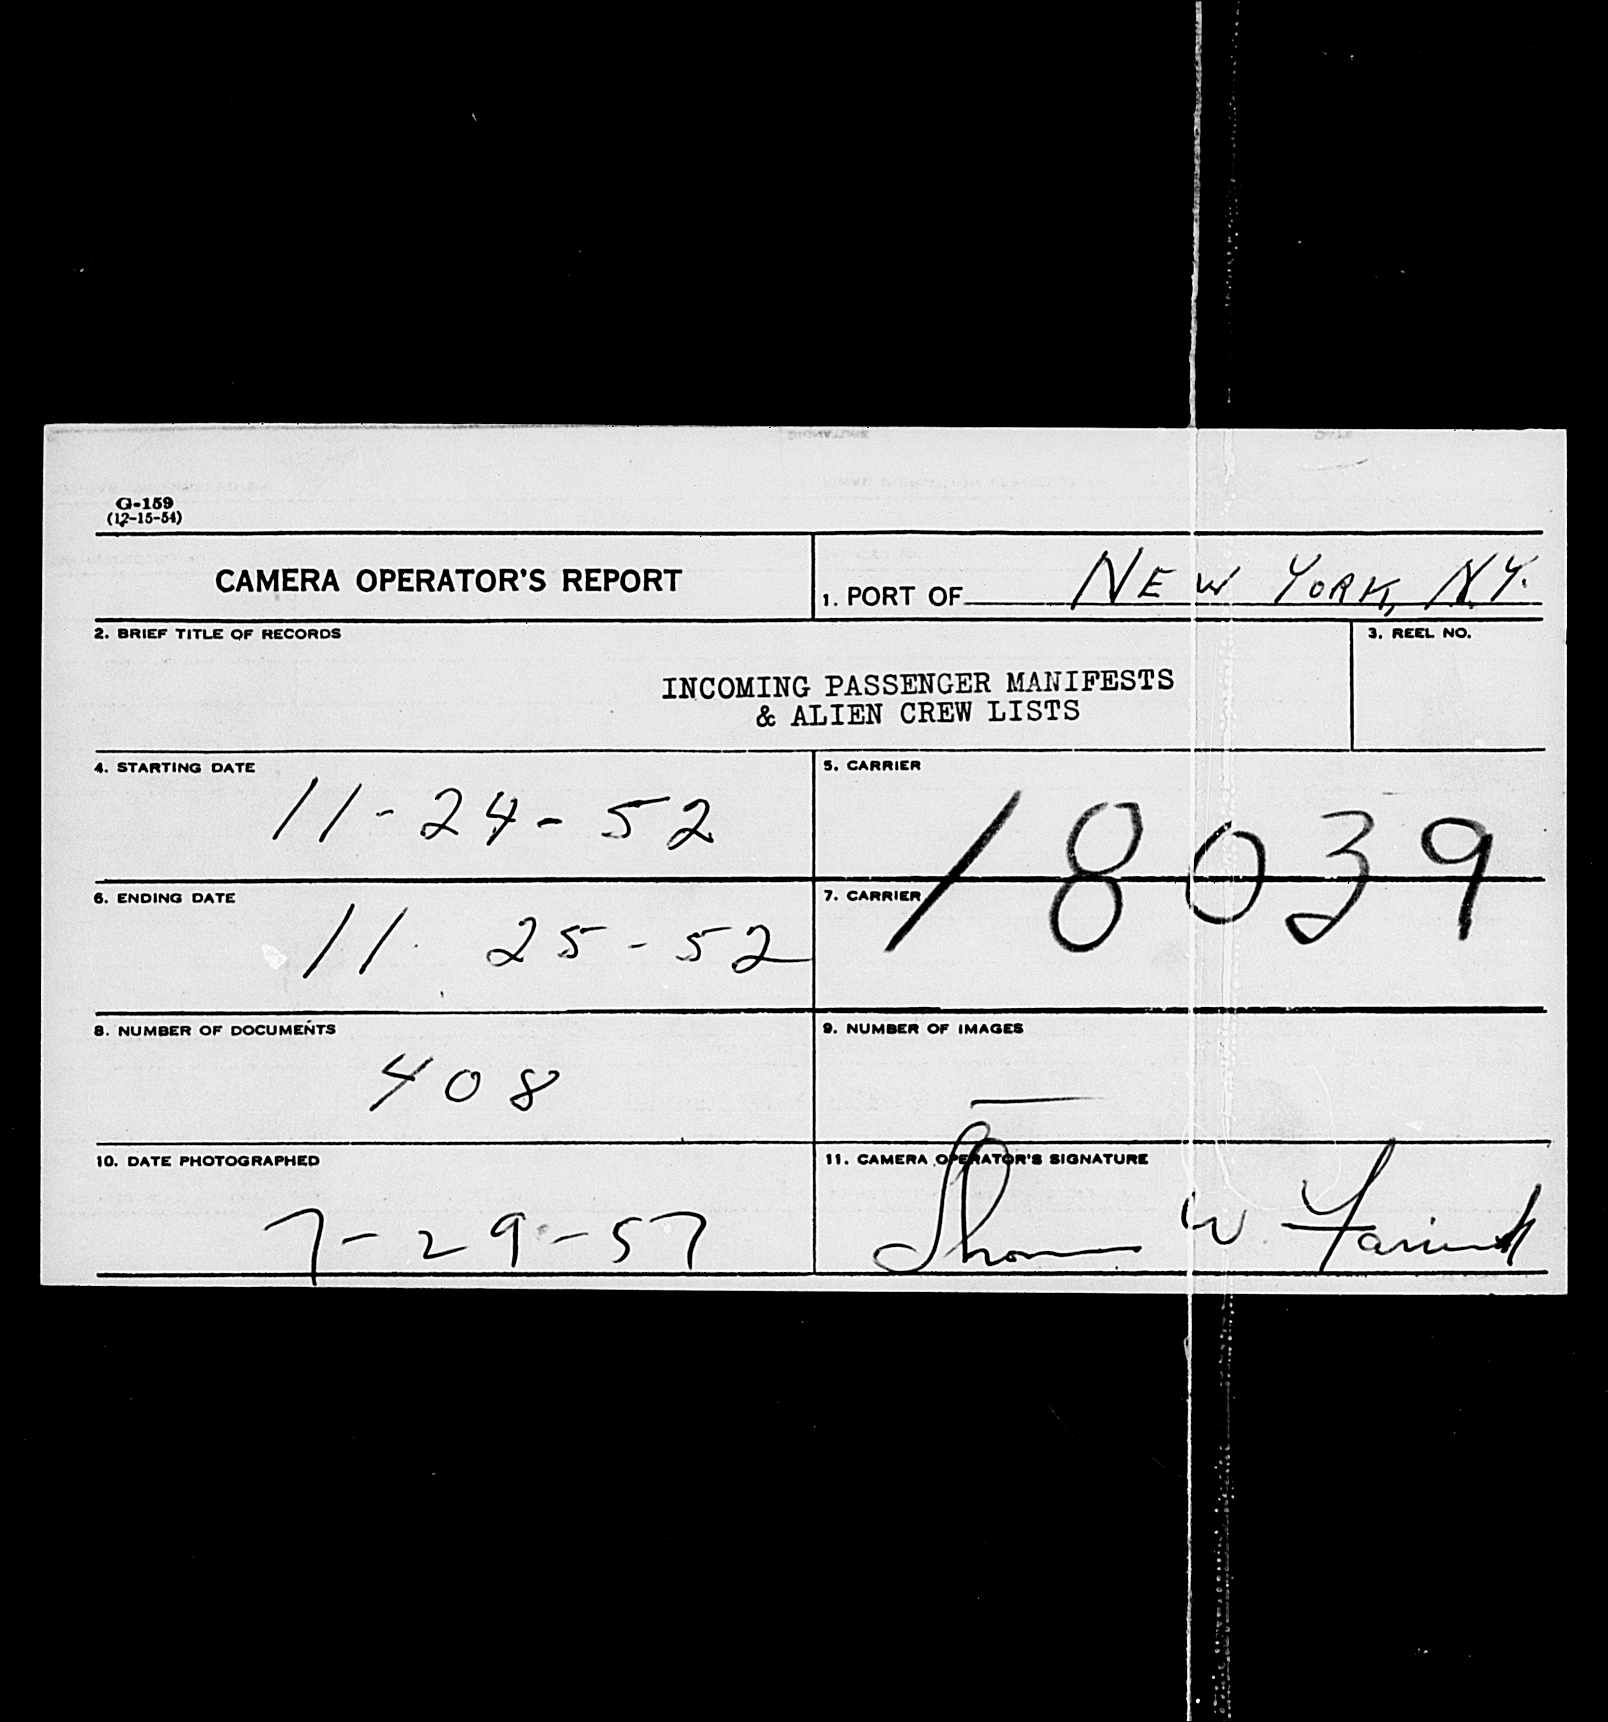 G-159
(12-15-54)
CAMERA OPERATOR'S REPORT
1. PORT OF NEW YORK, N.Y.
2. BRIEF TITLE OF RECORDS
INCOMING PASSENGER MANIFESTS
& ALIEN CREW LISTS
3. REEL NO.
4. STARTING DATE
11-24-52
5. CARRIER
18039
6. ENDING DATE
11 25-52
7. CARRIER
8. NUMBER OF DOCUMENTS
408
9. NUMBER OF IMAGES
—
10. DATE PHOTOGRAPHED
7-29-57
11. CAMERA OPERATOR'S SIGNATURE
Thomas W